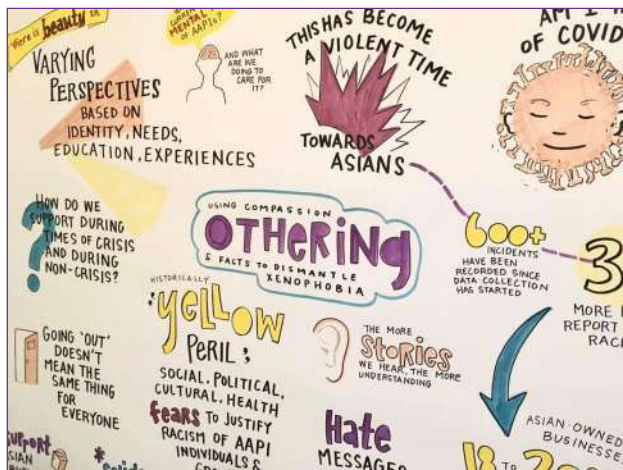 There is beauty in
VARYING
PERSPECTIVES
BASED ON
IDENTITY, NEEDS,
EDUCATION, EXPERIENCES
MENTAL
OF AAPIs?
AND WHAT
ARE WE
DOING TO
CARE FOR
IT?
THIS HAS BECOME
A VIOLENT TIME
TOWARDS
ASIANS
AM I
OF COVID
HOW DO WE
SUPPORT DURING
TIMES OF CRISIS
AND DURING
NON-CRISIS?
?
USING COMPASSION
OTHERING
& FACTS TO DISMANTLE
XENOPHOBIA
600+
INCIDENTS
HAVE BEEN
RECORDED SINCE
DATA-COLLECTION
HAS STARTED
3
MORE
REPORT
GOING 'OUT'
DOESN'T
MEAN THE
SAME THING
FOR
EVERYONE
HISTORICALLY
"YELLOW
PERIL";
SOCIAL, POLITICAL,
CULTURAL, HEALTH
fears TO JUSTIFY
RACISM OF AAPI
INDIVIDUALS &
THE MORE
Stories
WE HEAR, THE MORE
UNDERSTANDING
Hate
MESSAGES
ASIAN-OWNED
BUSINESSE
18 TO
SUPPORT